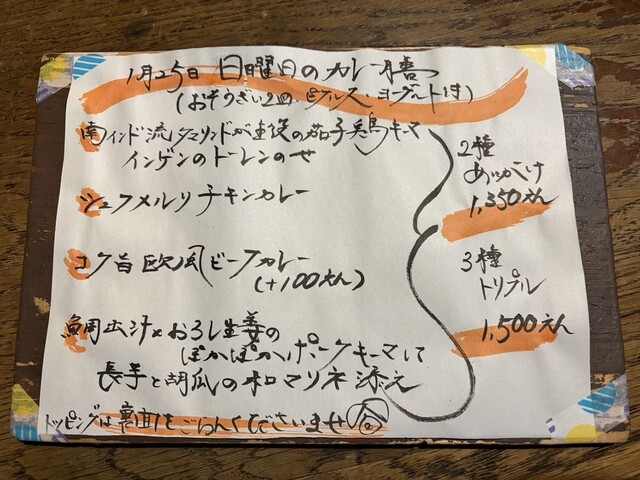 1月25日 日曜日のカレー膳
(おそうざい2皿、ピクルス、ヨーグルト付)
南インド流タマリンドが主役の茄子と鶏キーマ
インゲンのトーレンのせ
シュクメルリチキンカレー
コク旨欧風ビーフカレー
(+100えん)
鯛出汁×おろし生姜の
ぽかぽかポークキーマして
長芋と胡瓜の和マリネ添え
2種
あいがけ
1,350えん
3種
トリプル
1,500えん
トッピングは裏面をごらんくださいませ